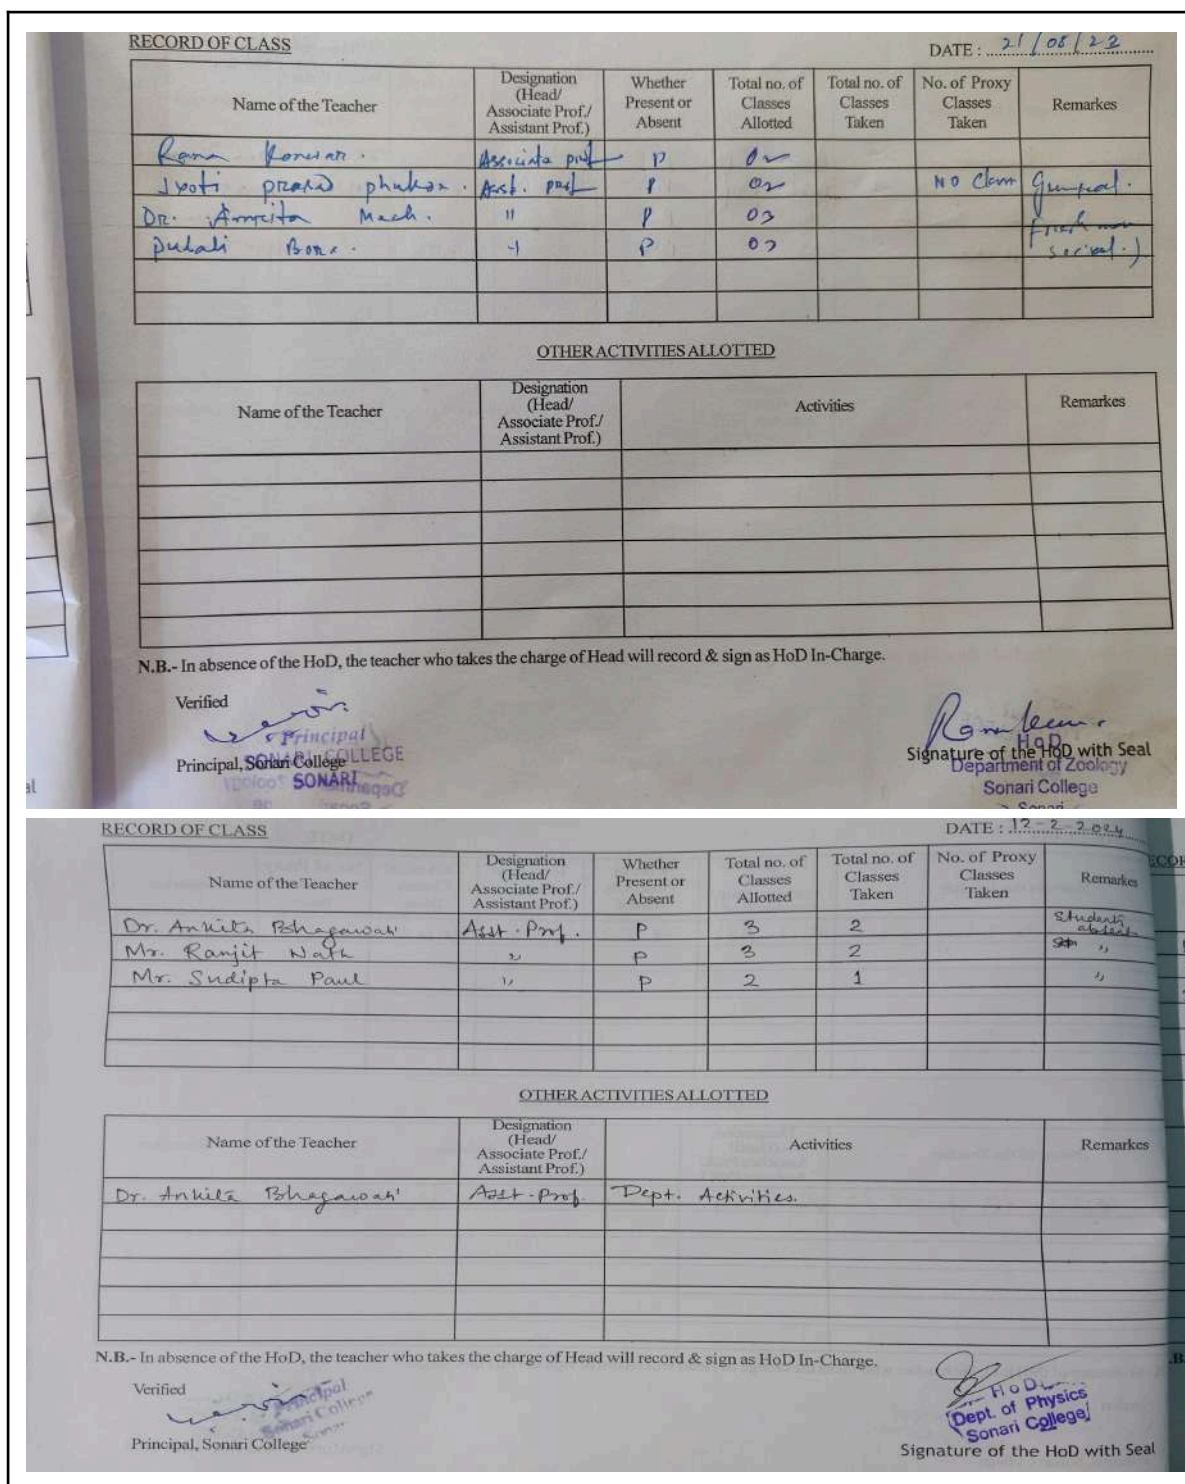 RECORD OF CLASS
DATE : 21/08/23
Name of the Teacher Designation (Head/ Associate Prof./ Assistant Prof.) Whether Present or Absent Total no. of Classes Allotted Total no. of Classes Taken No. of Proxy Classes Taken Remarkes
Rana Konwar. Associate prof P 02
Jyoti prasad phukan. Asst. prof P 02 NO Class
Dr. Amrita Mech. " P 03
Dulali Bora. " P 03
OTHER ACTIVITIES ALLOTTED
Name of the Teacher Designation (Head/ Associate Prof./ Assistant Prof.) Activities Remarkes
N.B.- In absence of the HoD, the teacher who takes the charge of Head will record & sign as HoD In-Charge.
Verified
Principal
SONARI COLLEGE
Principal, Sonari College
SONARI
HoD
Signature of the HoD with Seal
Department of Zoology
Sonari College
Sonari
RECORD OF CLASS
DATE : 12-2-2024
Name of the Teacher Designation (Head/ Associate Prof./ Assistant Prof.) Whether Present or Absent Total no. of Classes Allotted Total no. of Classes Taken No. of Proxy Classes Taken Remarkes
Dr. Ankita Bhagawati Asst. Prof. P 3 2 Students absent
Mr. Ranjit Nath " P 3 2 "
Mr. Sudipta Paul " P 2 1 "
OTHER ACTIVITIES ALLOTTED
Name of the Teacher Designation (Head/ Associate Prof./ Assistant Prof.) Activities Remarkes
Dr. Ankita Bhagawati Asst. Prof. Dept. Activities.
N.B.- In absence of the HoD, the teacher who takes the charge of Head will record & sign as HoD In-Charge.
Verified
Principal
Sonari College
Principal, Sonari College
HoD
Dept. of Physics
Sonari College
Signature of the HoD with Seal